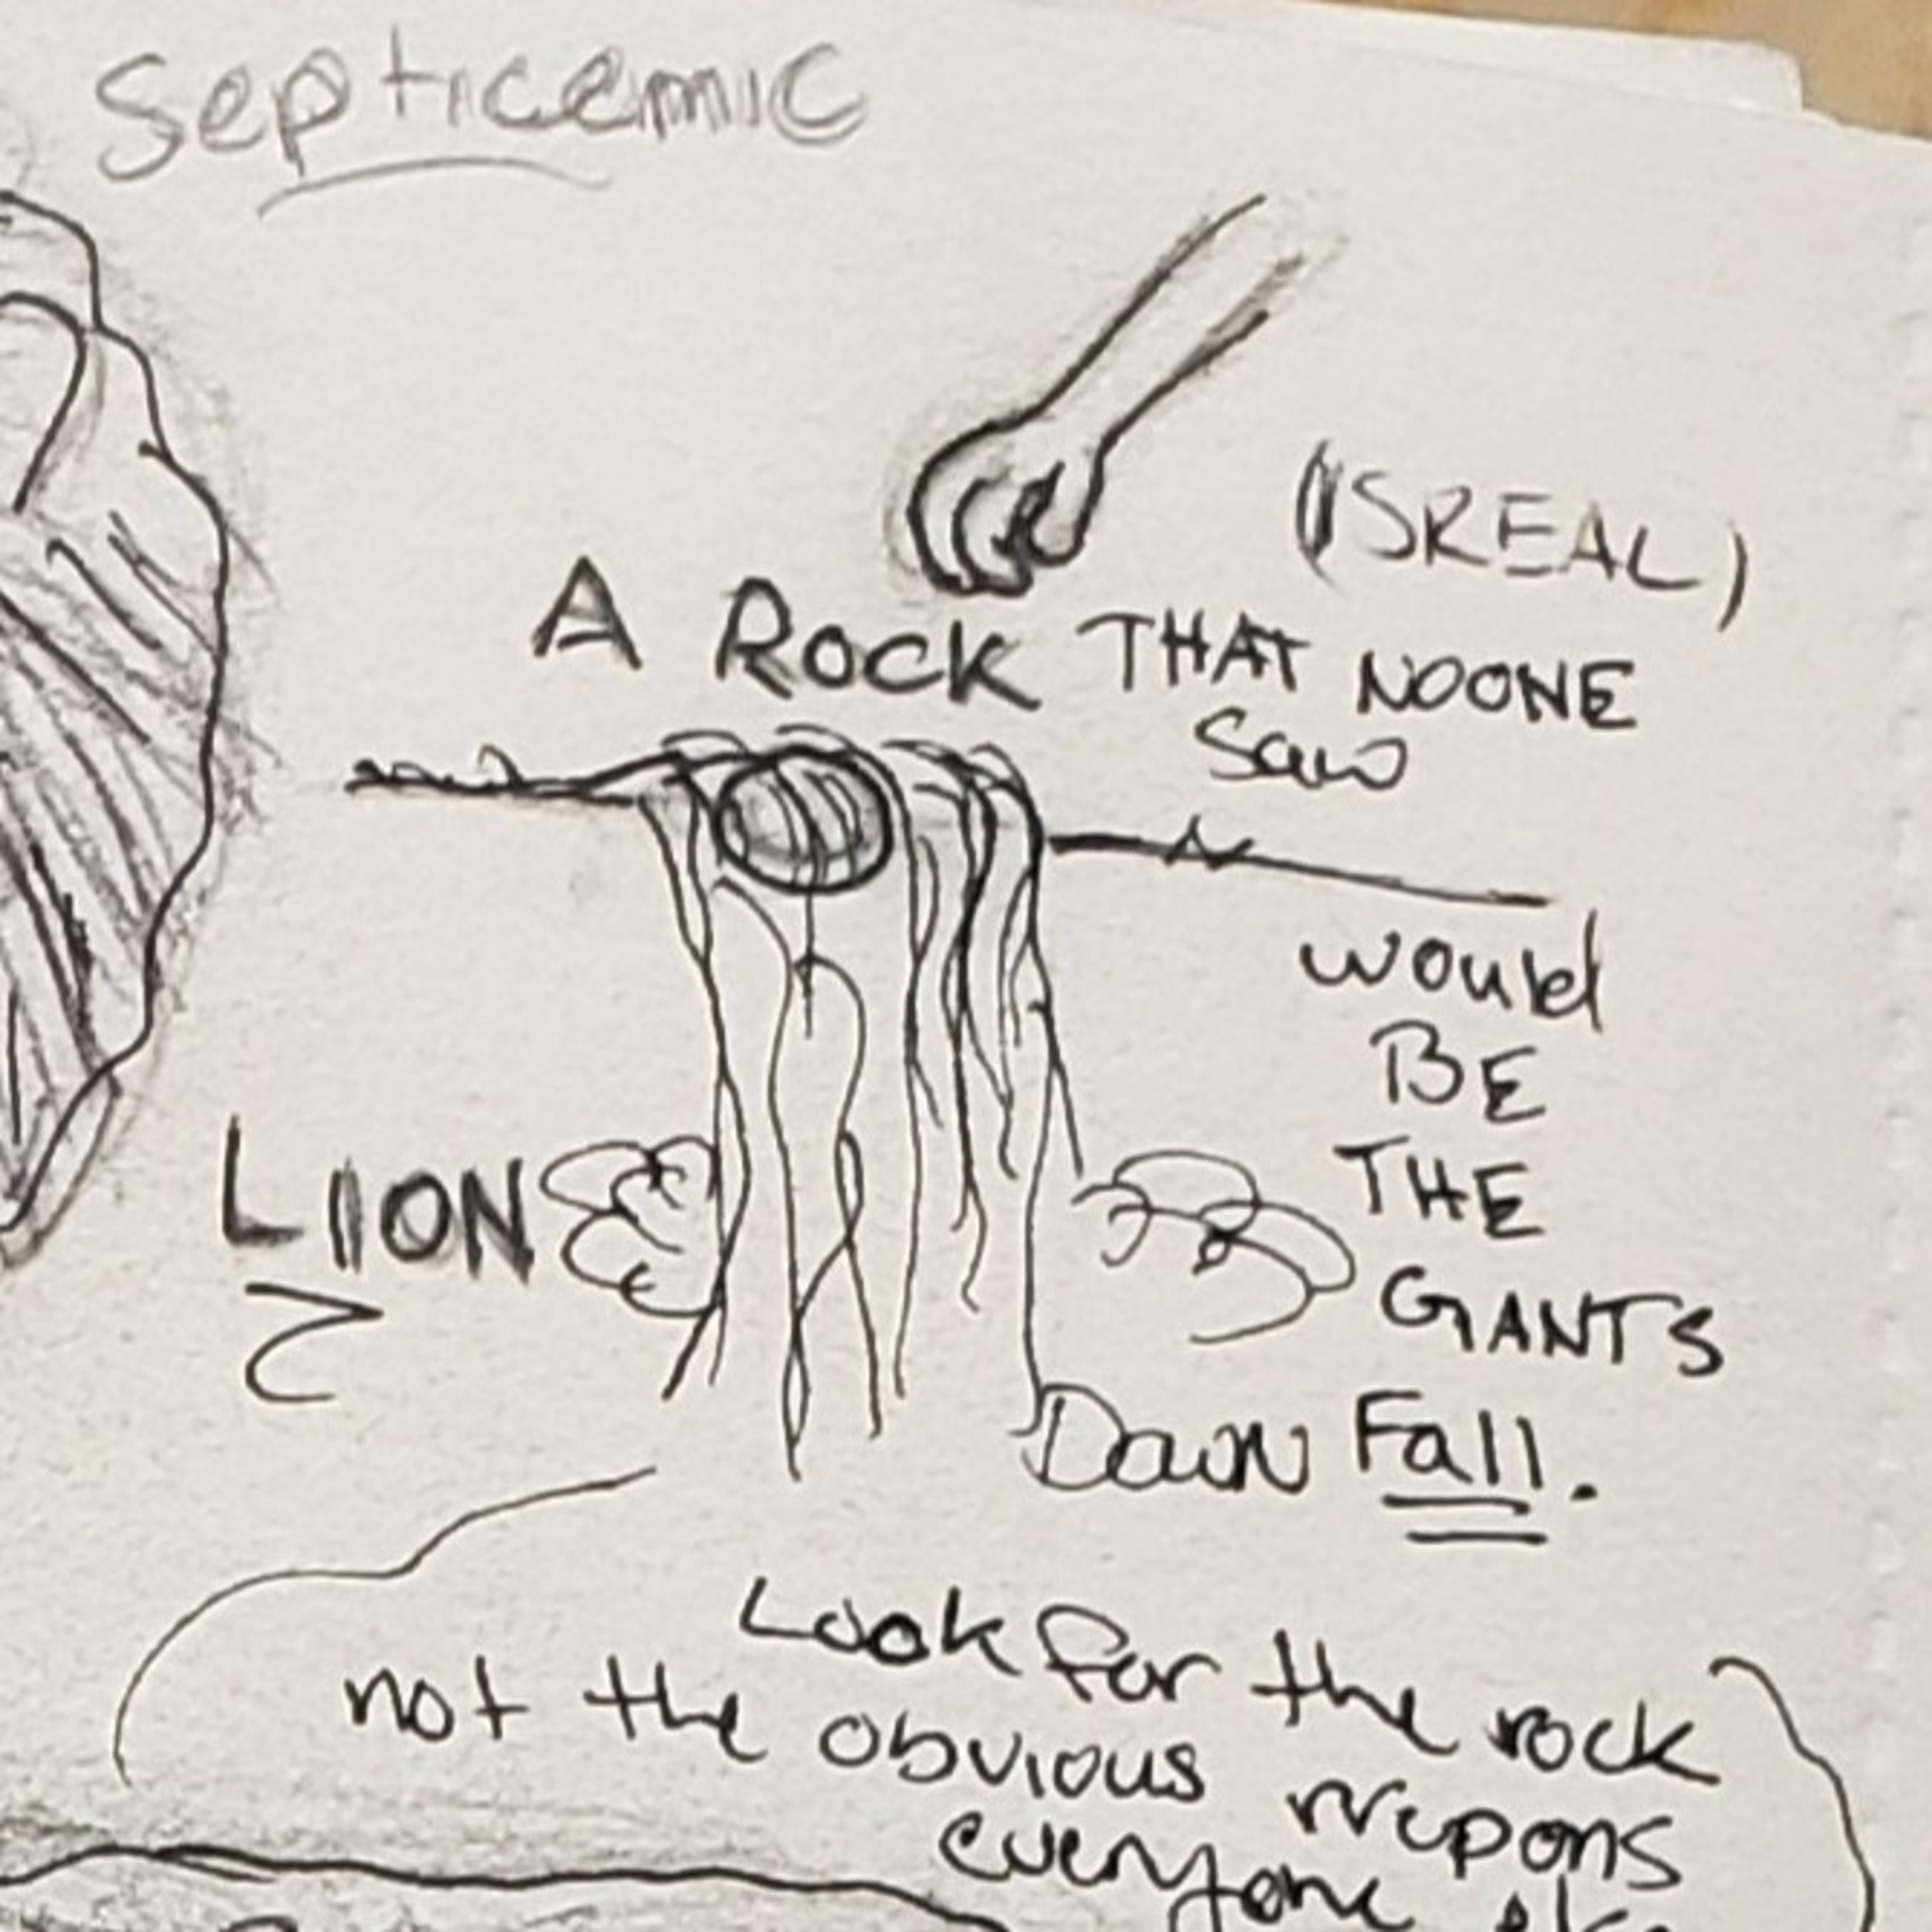 septicemic
(ISREAL)
A ROCK THAT NOONE
Saw
would
BE
THE
LION
GIANTS
Down Fall.
Look for the rock
not the obvious
everyone